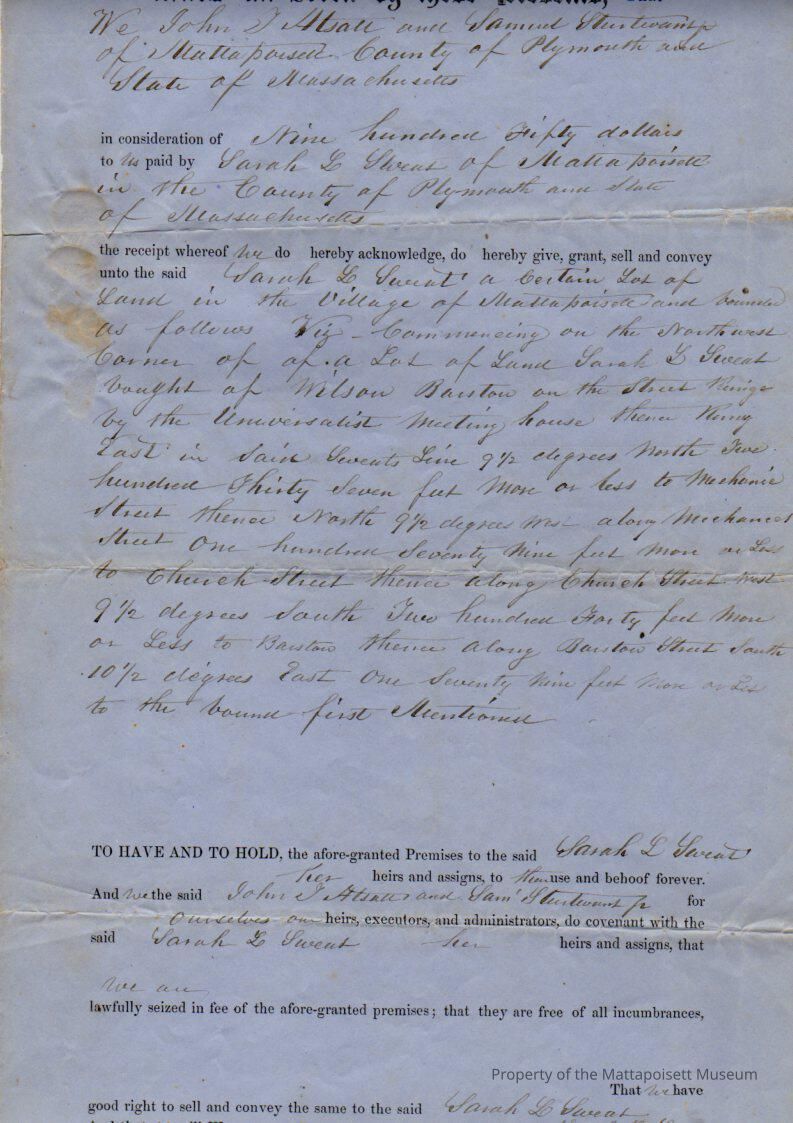 Know all Men by these Presents, That
We John T Atsatt and Samuel Sturtevant Jr
of Mattapoisett County of Plymouth and
State of Massachusetts
in consideration of Nine hundred Fifty dollars
to us paid by Sarah L Sweat of Mattapoisett
in the County of Plymouth and State
of Massachusetts
the receipt whereof we do hereby acknowledge, do hereby give, grant, sell and convey
unto the said Sarah L Sweat a Certain Lot of
Land in the Village of Mattapoisett and bounded
as follows Viz - Commencing on the Northwest
Corner of of a Lot of Land Sarah L Sweat
bought of Wilson Barstow on the Street
by the Universalist Meeting house thence
East in Said Sweats Line 9 1/2 degrees North Two
hundred Thirty Seven feet More or less to Mechanic
Street thence North 9 1/2 degrees West along Mechanics
Street One hundred Seventy Nine feet More or Less
to Church Street thence along Church Street West
9 1/2 degrees South Two hundred Forty feet More
or Less to Barstow thence along Barstow Street South
10 1/2 degrees East One Seventy Nine feet More or Less
to the bound first Mentioned
TO HAVE AND TO HOLD, the afore-granted Premises to the said Sarah L Sweat
her heirs and assigns, to their use and behoof forever.
And we the said John T Atsatt and Sam' Sturtevant Jr for
Ourselves our heirs, executors, and administrators, do covenant with the
said Sarah L Sweat her heirs and assigns, that
we are
lawfully seized in fee of the afore-granted premises; that they are free of all incumbrances,
Property of the Mattapoisett Museum
That we have
good right to sell and convey the same to the said Sarah L Sweat